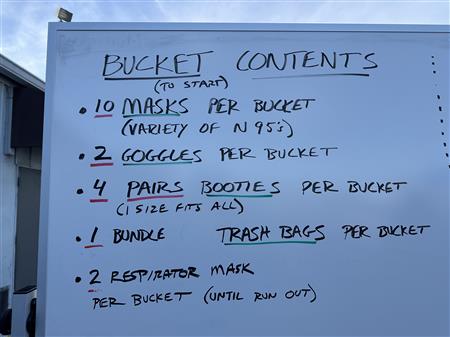 BUCKET CONTENTS
(TO START)
• 10 MASKS PER BUCKET
(VARIETY OF N 95's)
• 2 GOGGLES PER BUCKET
• 4 PAIRS BOOTIES PER BUCKET
(1 SIZE FITS ALL)
• 1 BUNDLE TRASH BAGS PER BUCKET
• 2 RESPIRATOR MASK
PER BUCKET (UNTIL RUN OUT)